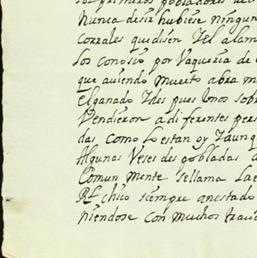 los primeros pobladores de
nunca desir hubiese ningun
corrales que disen Jel alam
los conosio por Vaqueria de
que auiendo muerto abra m
el ganado Y des pues Unos sobr
Vendieron a di ferentes pers
das como lo estan oy Y aunq
Algunas Veses des pobladas a
Comun mente se llama La e
Rl chico siempre an estado
niendose con muchos trauа